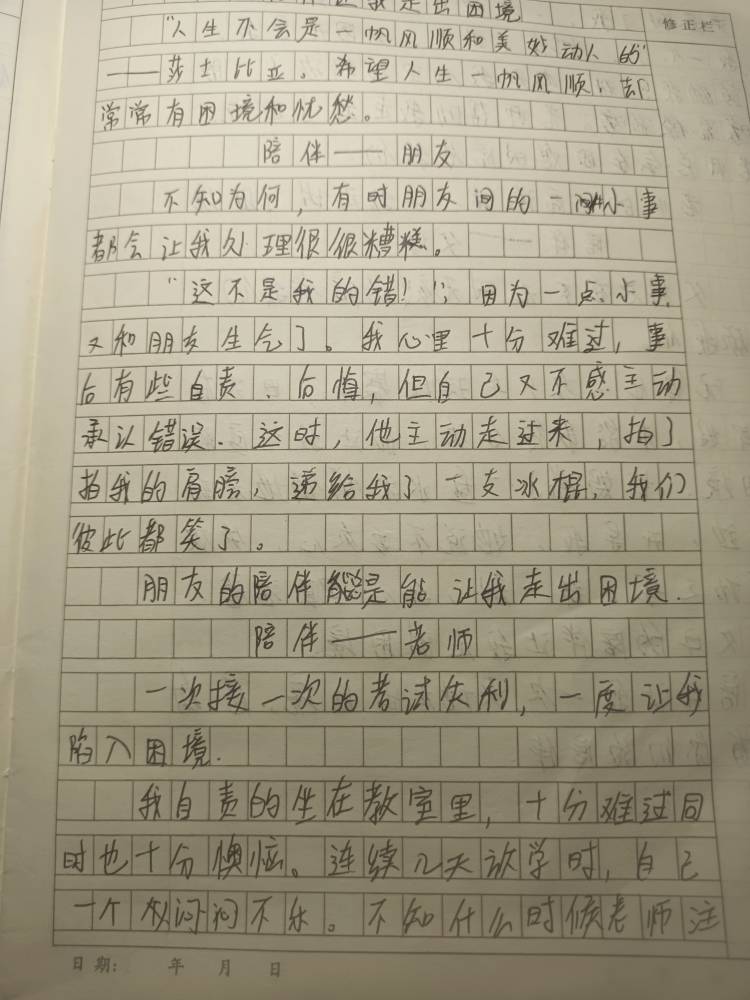 让我走出困境
修正栏
"人生不会是一帆风顺和美妙动人的"
——莎士比亚。希望人生一帆风顺,却
常常有困境和忧愁。
陪伴——朋友
不知为何,有时朋友间的一些小事
都会让我处理很很糟糕。
"这不是我的错!"因为一点小事
又和朋友生气了。我心里十分难过,事
后有些自责、后悔,但自己又不感主动
承认错误.这时,他主动走过来,拍了
拍我的肩膀,递给我了一支冰棍,我们
彼此都笑了。
朋友的陪伴总是能让我走出困境.
陪伴——老师
一次接一次的考试失利,一度让我
陷入困境.
我自责的坐在教室里,十分难过同
时也十分懊恼。连续几天放学时,自己
一个人闷闷不乐。不知什么时候老师注
日期: 年 月 日